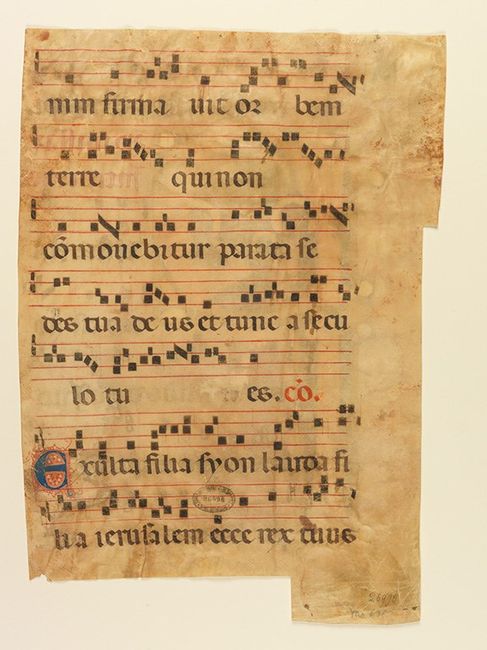 nim firma uit or bem
terre qui non
cōmouebitur parata se
des tua de us et tunc a secu
lo tu es. cō.
Exulta filia syon lauda fi
lia ierusalem ecce rex tuus